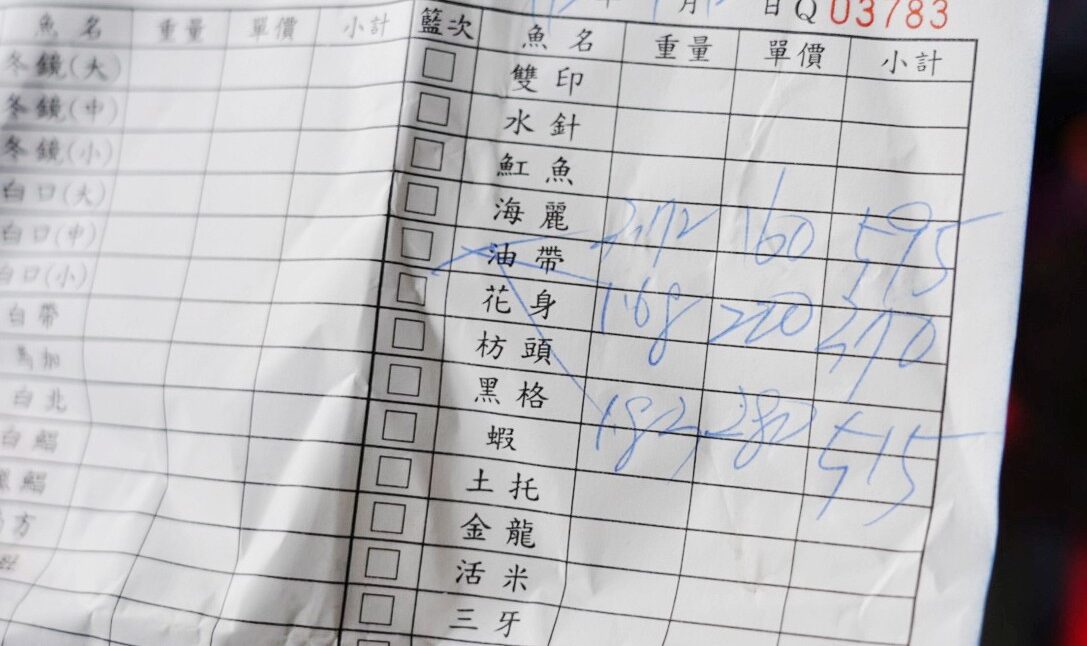 年 月 日 Q 03783
魚名 重量 單價 小計 籃次 魚名 重量 單價 小計
冬鏡(大) 雙印
冬鏡(中) 水針
冬鏡(小) 魟魚
白口(大) 海麗
白口(中) 油帶 3.72 160 595
白口(小) 花身 1.68 220 370
白帶 枋頭
馬加 黑格
白北 蝦 1.83 282 515
白鯧 土托
鯧 金龍
方 活米
三牙